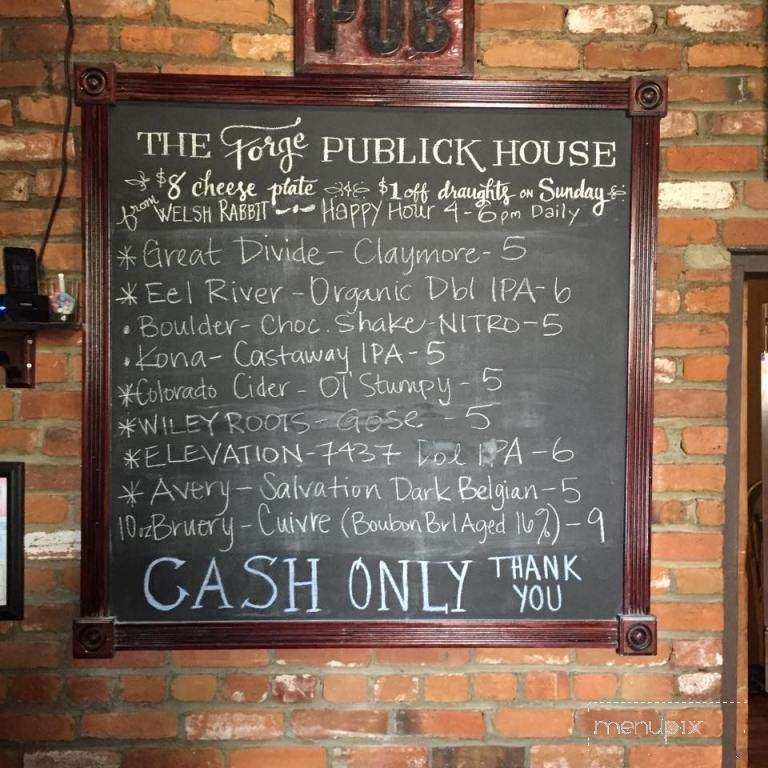 PUB
THE Forge PUBLICK HOUSE
$8 cheese plate $1 off draughts on Sunday
from WELSH RABBIT Happy Hour 4-6pm Daily
* Great Divide - Claymore - 5
* Eel River - Organic Dbl IPA - 6
• Boulder - Choc. Shake - NITRO - 5
• Kona - Castaway IPA - 5
* Colorado Cider - Ol' Stumpy - 5
* WILEY ROOTS - Gose - 5
* ELEVATION - 7437 Dbl IPA - 6
* Avery - Salvation Dark Belgian - 5
10oz Bruery - Cuivre (Boubon Brl Aged 16%) - 9
CASH ONLY THANK YOU
menupix